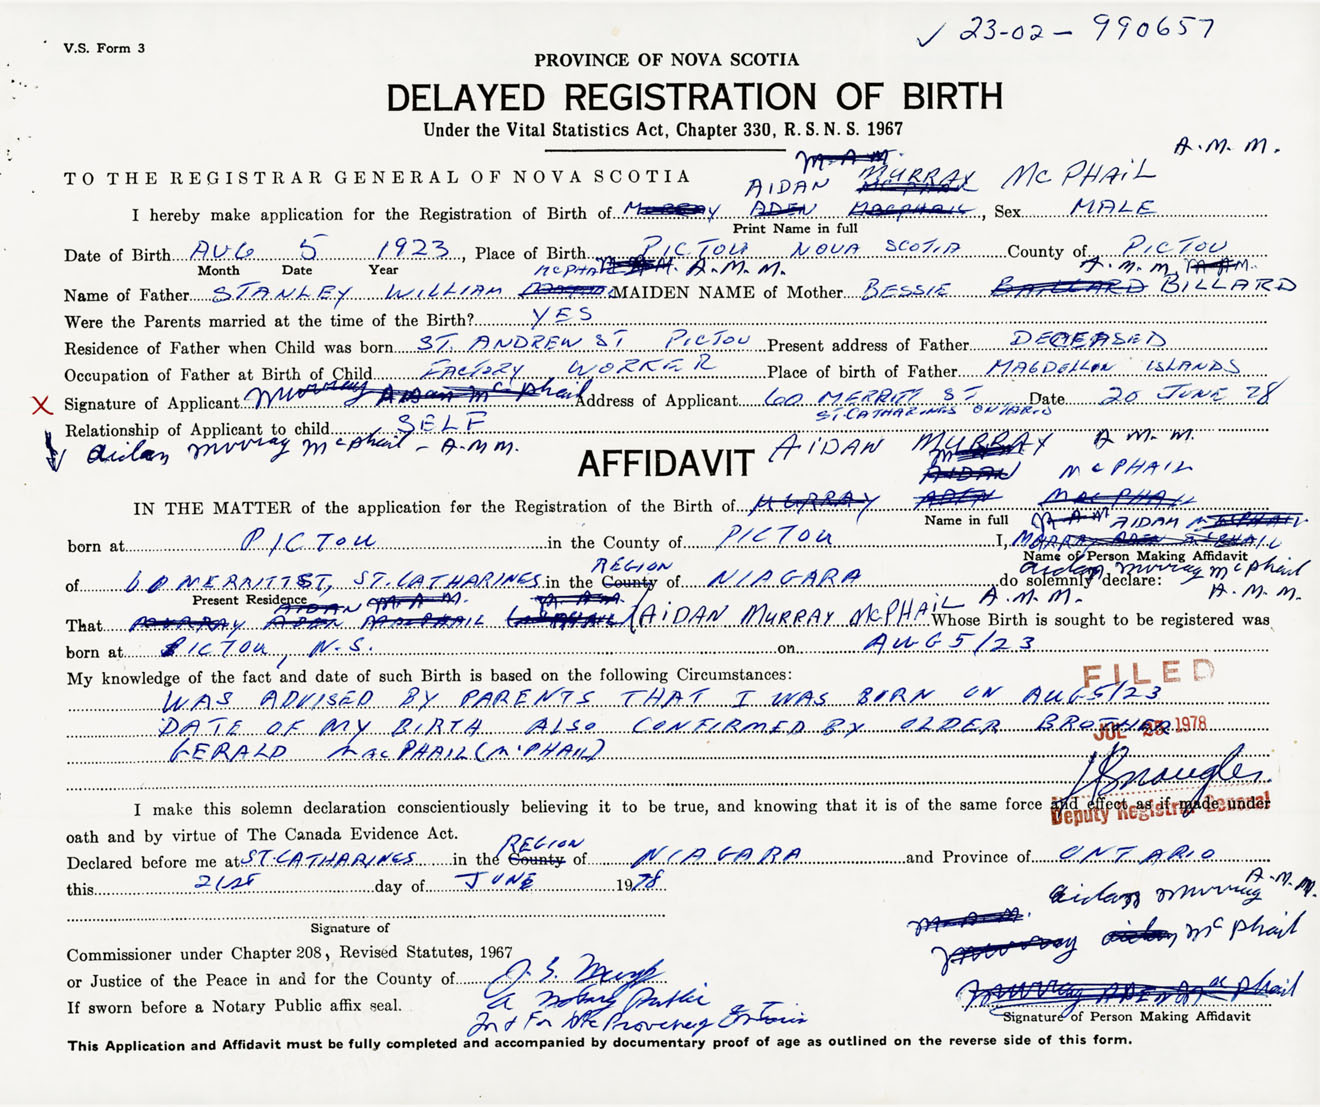 ✓ 23-02-990657
V.S. Form 3
PROVINCE OF NOVA SCOTIA
DELAYED REGISTRATION OF BIRTH
Under the Vital Statistics Act, Chapter 330, R. S. N. S. 1967
M.A.M. A.M.M.
TO THE REGISTRAR GENERAL OF NOVA SCOTIA AIDAN MURRAY McPHAIL
I hereby make application for the Registration of Birth of MURRAY ADEN MACPHAIL, Sex MALE
Print Name in full
Date of Birth AUG 5 1923, Place of Birth PICTOU NOVA SCOTIA County of PICTOU
Month Date Year McPHAIL M.A.M. A.M.M. A.M.M. M.A.M.
Name of Father STANLEY WILLIAM MAIDEN NAME of Mother BESSIE BAILLARD BILLARD
Were the Parents married at the time of the Birth? YES
Residence of Father when Child was born ST. ANDREW ST PICTOU Present address of Father DECEASED
Occupation of Father at Birth of Child FACTORY WORKER Place of birth of Father MAGDELLON ISLANDS
X Signature of Applicant Murray Aidan McPhail Address of Applicant 60 MERRITT ST Date 20 JUNE 78
ST. CATHARINES ONTARIO
Relationship of Applicant to child SELF
Aidan Murray McPhail - A.M.M.
AFFIDAVIT AIDAN MURRAY A.M.M.
AIDAN McPHAIL
IN THE MATTER of the application for the Registration of the Birth of MURRAY ADEN MACPHAIL
Name in full M.A.M AIDAN McPHAIL
born at PICTOU in the County of PICTOU I, MURRAY ADEN McPHAIL
Name of Person Making Affidavit
REGION Aidan Murray McPhail
of 60 MERRITT ST, ST. CATHARINES in the County of NIAGARA do solemnly declare:
Present Residence AIDAN M.A.M. M.A.M. A.M.M. A.M.M.
That MURRAY ADEN MACPHAIL (McPHAIL) (AIDAN MURRAY McPHAIL Whose Birth is sought to be registered was
born at PICTOU, N.S. on AUG 5/23
My knowledge of the fact and date of such Birth is based on the following Circumstances:
FILED
WAS ADVISED BY PARENTS THAT I WAS BORN ON AUG 5/23
DATE OF MY BIRTH ALSO CONFIRMED BY OLDER BROTHER
JUL 25 1978
GERALD MacPHAIL (McPHAIL)
I make this solemn declaration conscientiously believing it to be true, and knowing that it is of the same force and effect as if made under
Deputy Registrar General
oath and by virtue of The Canada Evidence Act.
REGION
Declared before me at ST. CATHARINES in the County of NIAGARA and Province of ONTARIO
this 21st day of JUNE 1978
A.M.M.
Aidan Murray
Signature of
M.A.M.
Murray Aidan McPhail
Commissioner under Chapter 208, Revised Statutes, 1967
or Justice of the Peace in and for the County of
If sworn before a Notary Public affix seal.
a Notary Public
In & For the Province of Ontario
Murray ADEN McPhail
Signature of Person Making Affidavit
This Application and Affidavit must be fully completed and accompanied by documentary proof of age as outlined on the reverse side of this form.